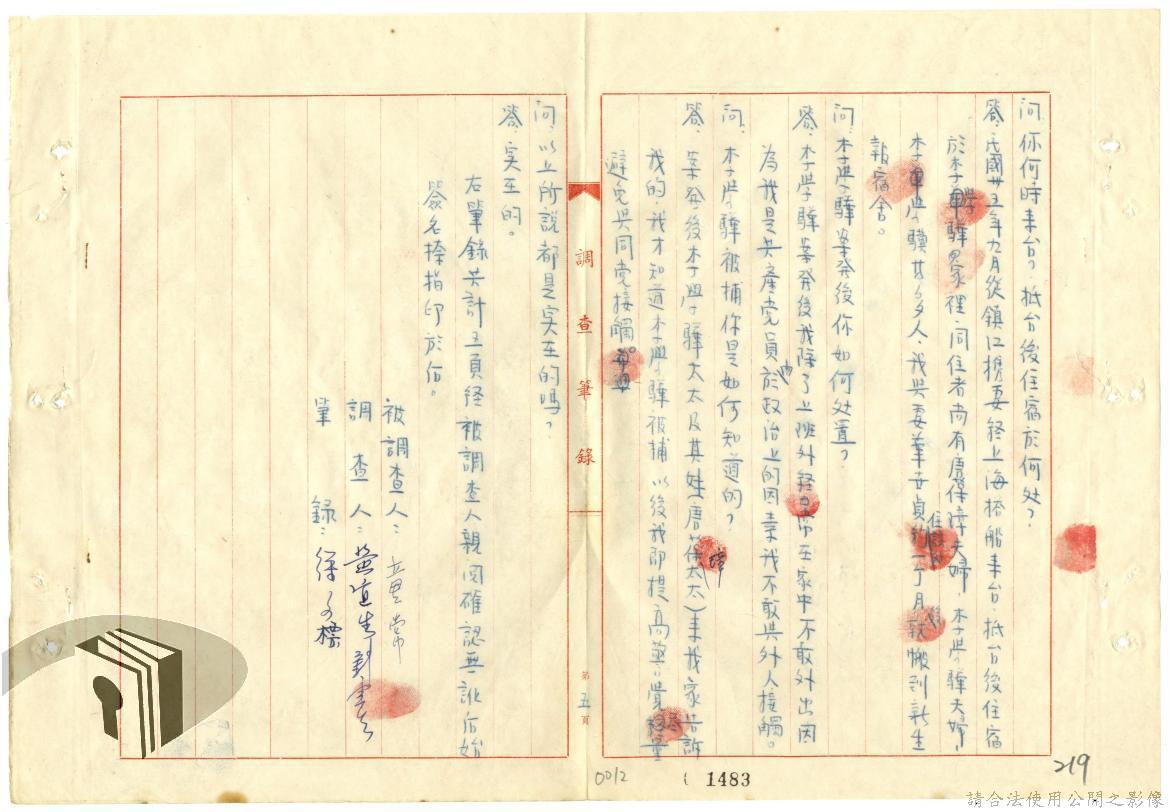 問:你何時來台?抵台後住宿於何处?
答:民國卅五年九月從鎮江携妻経上海搭船來台,抵台後住宿
於李學驊家裡,同住者尚有唐葆璋夫婦,李學驊夫婦,
李學驊其乡人,我與妻華世貞住約一丁月後搬到新生
報宿舍。
問:李學驊案発後你如何处置?
答:李學驊案発後我除了上班外経常在家中不敢外出因
為我是共產党員於政治上的因素我也不敢與外人接觸。
問:李學驊被捕你是如何知道的?
答:案発後李學驊太太及其姓唐葆璋太太)來我家告訴
我的,我才知道李學驊被捕以後我即提高警覺儘量
避免與同党接觸。
問:以上所說都是实在的嗎?
答:实在的。
右筆錄共計五頁経被調查人親閱確認無訛后始
簽名捺指印於后。
被調查人:
調查人:
筆錄:
調查筆錄
第五頁
0012
1483
219
請合法使用公開之影像